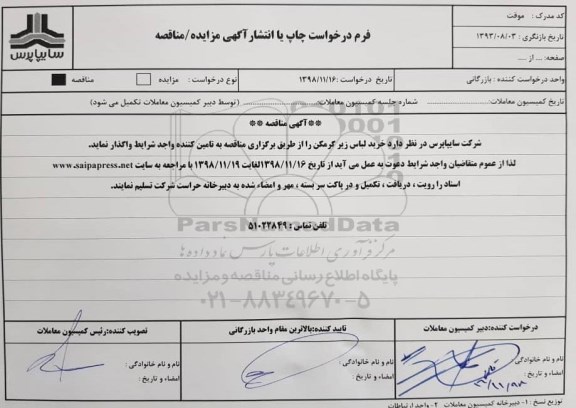 کد مدرک : موقت
تاریخ بازنگری : ۱۳۹۳/۰۸/۰۳
صفحه: ... از ....
فرم درخواست چاپ یا انتشار آگهی مزایده/مناقصه
سایپاپرس
واحد درخواست کننده : بازرگانی
تاریخ درخواست :۱۳۹۸/۱۱/۱۶
نوع درخواست : مزایده مناقصه
تاریخ کمیسیون معاملات: شماره جلسه کمیسیون معاملات: (توسط دبیر کمیسیون معاملات تکمیل می شود)
**آگهی مناقصه **
شرکت سایپاپرس در نظر دارد خرید لباس زیر گرمکن را از طریق برگزاری مناقصه به تامین کننده واجد شرایط واگذار نماید.
لذا از عموم متقاضیان واجد شرایط دعوت به عمل می آید از تاریخ ۱۳۹۸/۱۱/۱۶ لغایت ۱۳۹۸/۱۱/۱۹ با مراجعه به سایت www.saipapress.net
اسناد را رویت ، دریافت ، تکمیل و در پاکت سر بسته ، مهر و امضاء شده به دبیرخانه حراست شرکت تسلیم نمایند.
تلفن تماس : ۵۱۰۲۲۸۴۹
ParsNamadData
مرکز فرآوری اطلاعات پارس نماد داده ها
پایگاه اطلاع رسانی مناقصه و مزایده
۰۲۱-۸۸۳۴۹۶۷۰-۵
درخواست کننده:دبیر کمیسیون معاملات
تایید کننده:بالاترین مقام واحد بازرگانی
تصویب کننده:رئیس کمیسیون معاملات
نام و نام خانوادگی :
نام و نام خانوادگی :
نام و نام خانوادگی :
امضاء و تاریخ :
امضاء و تاریخ :
امضاء و تاریخ :
توزیع نسخ : ۱- دبیرخانه کمیسیون معاملات ۲- واحد ارتباطات